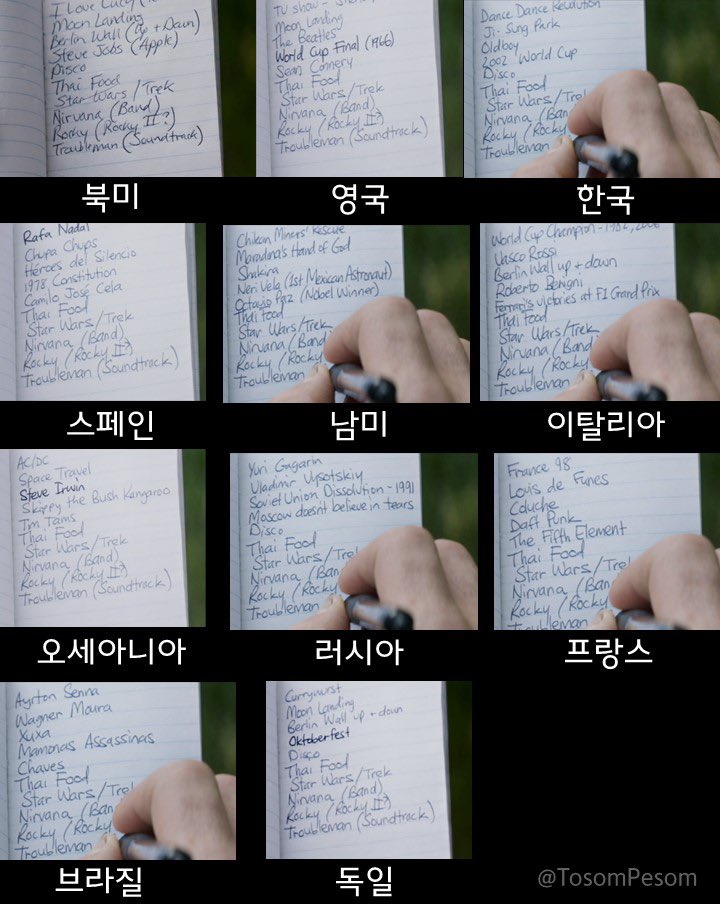 I Love Lucy
Moon Landing
Berlin Wall (Up + Down)
Steve Jobs (Apple)
Disco
Thai Food
Star Wars / Trek
Nirvana (Band)
Rocky (Rocky II?)
Troubleman (Soundtrack)
북미
TV show -
Moon Landing
The Beatles
World Cup Final (1966)
Sean Connery
Thai Food
Star Wars/Trek
Nirvana (Band)
Rocky (Rocky II?)
Troubleman (Soundtrack)
영국
Dance Dance Revolution
Ji-Sung Park
Oldboy
2002 World Cup
Disco
Thai Food
Star Wars/Trek
Nirvana (Band
Rocky (Rocky
Troubleman
한국
Rafa Nadal
Chupa Chups
Héroes del Silencio
1978 Constitution
Camilo José Cela
Thai Food
Star Wars/Trek
Nirvana (Band)
Rocky (Rocky II?)
Troubleman (Soundtrack)
스페인
Chilean Miners' Rescue
Maradona's Hand of God
Shakira
Neri Vela (1st Mexican Astronaut)
Octavio Paz (Nobel Winner)
Thai Food
Star Wars/Trek
Nirvana (Band
Rocky (Rocky
Troubleman
남미
World Cup Champion - 1982, 2006
Vasco Rossi
Berlin Wall up + down
Roberto Benigni
Ferrari's victories at F1 Grand Prix
Thai Food
Star Wars/Trek
Nirvana (Band
Rocky (Rocky
Troubleman
이탈리아
AC/DC
Space Travel
Steve Irwin
Skippy the Bush Kangaroo
Tim Tams
Thai Food
Star Wars/Trek
Nirvana (Band)
Rocky (Rocky II?)
Troubleman (Soundtrack)
오세아니아
Yuri Gagarin
Vladimir Vysotskiy
Soviet Union Dissolution - 1991
Moscow doesnt believe in tears
Disco
Thai Food
Star Wars/Trek
Nirvana (Band
Rocky (Rocky
Troubleman
러시아
France 98
Louis de Funes
Coluche
Daft Punk
The Fifth Element
Thai Food
Star Wars/Trek
Nirvana (Band
Rocky (Rocky
Troubleman
프랑스
Ayrton Senna
Wagner Moura
Xuxa
Mamonas Assassinas
Chaves
Thai Food
Star Wars/Trek
Nirvana (Ban
Rocky (Rocky
Troubleman
브라질
Currywurst
Moon Landing
Berlin Wall up + down
Oktoberfest
Disco
Thai Food
Star Wars/Trek
Nirvana (Band)
Rocky (Rocky II?)
Troubleman (Soundtrack)
독일
@TosomPesom